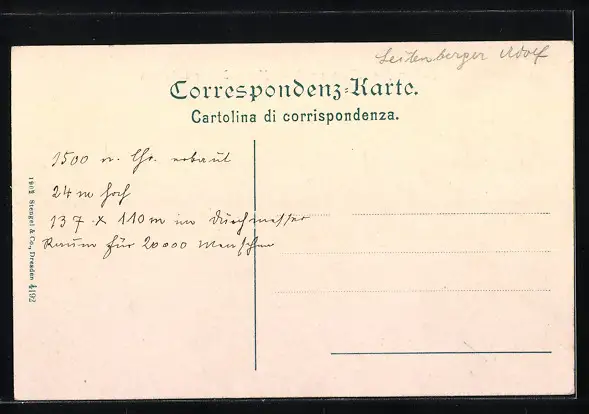 Leitenberger Adolf
Correspondenz-Karte.
Cartolina di corrispondenza.
1500 n. Chr. erbaut
24 m hoch
137 x 110 m im Durchmesser
Raum für 20000 Menschen
Stengel & Co., Dresden 4192